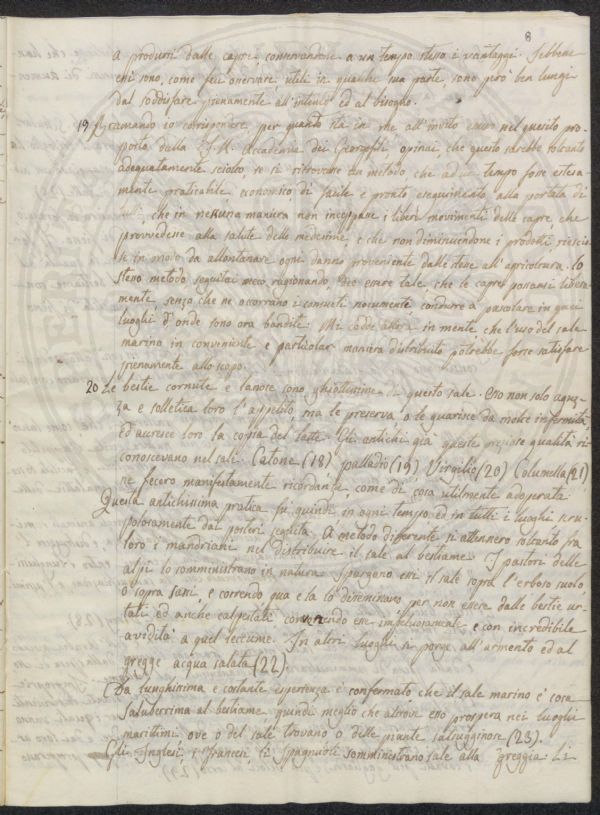 8
a prodursi dalle capre, conservandone a un tempo stesso i vantaggi. Sebbene
essi sono, come feci osservare, utili in qualche sua parte, sono però ben lungi
dal soddisfare pienamente all'intento ed al bisogno.
19 Bramando io corrispondere per quanto sta in me all'invito emesso nel quesito pro-
posto dalla I. R. Accademia dei Georgofili opinai, che questo sarebbe soltanto
adeguatamente sciolto, se si ritrovasse un metodo, che ad un tempo fosse estesa-
mente praticabile, economico, di facile e pronto eseguimento alla portata di
che in nessuna maniera non inceppasse i liberi movimenti delle capre che
provvedesse alla salute delle medesime, e che non diminuendone i prodotti riescis-
se in modo da allontanare ogni danno proveniente dalle stesse all'agricoltura. Lo
stesso metodo seguitai meco ragionando, deve essere tale, che le capre possansi libera-
mente, senza che ne occorrano i consueti nocumenti condurre a pascolare in quei
luoghi d'onde sono ora bandite. Mi cadde allora in mente che l'uso del sale
marino in conveniente e particolar maniera distribuito potrebbe forse satisfare
pienamente allo scopo.
20 Le bestie cornute e lanose sono ghiottissime di questo sale. Esso non solo aguz-
za e solletica loro l'appetito, ma le preserva o le guarisce da molte infermità,
ed accresce loro la copia del latte. Gli antichi già queste preziose qualità ri-
conoscevano nel sale. Catone (18), palladio (19), Virgilio (20) Columella (21)
ne fecero manifestamente ricordanza, come di cosa utilmente adoperata.
Questa antichissima pratica fu quindi in ogni tempo ed in tutti i luoghi scru-
polosamente dai posteri seguita. A metodo differente si attennero soltanto fra
loro i mandriani nel distribuire il sale al bestiame. I pastori delle
alpi lo somministrano in natura. Spargono essi il sale sopra l'erboso suolo,
o sopra sassi, e correndo qua e la lo disseminano per non essere dalle bestie ur-
tati ed anche calpestati correndo esse impetuosamente e con incredibile
avidità a quel leccume. In altri luoghi si porge all'armento ed al
gregge acqua salata (22).
Da lunghissima e costante esperienza è confermato, che il sale marino è cosa
saluberrima al bestiame, quindi meglio che altrove esso prospera nei luoghi
marittimi ove o del sale trovano o delle piante salsugginose (23).
Gli Inglesi, i francesi, li Spagnuoli somministrano sale alla greggia. Li